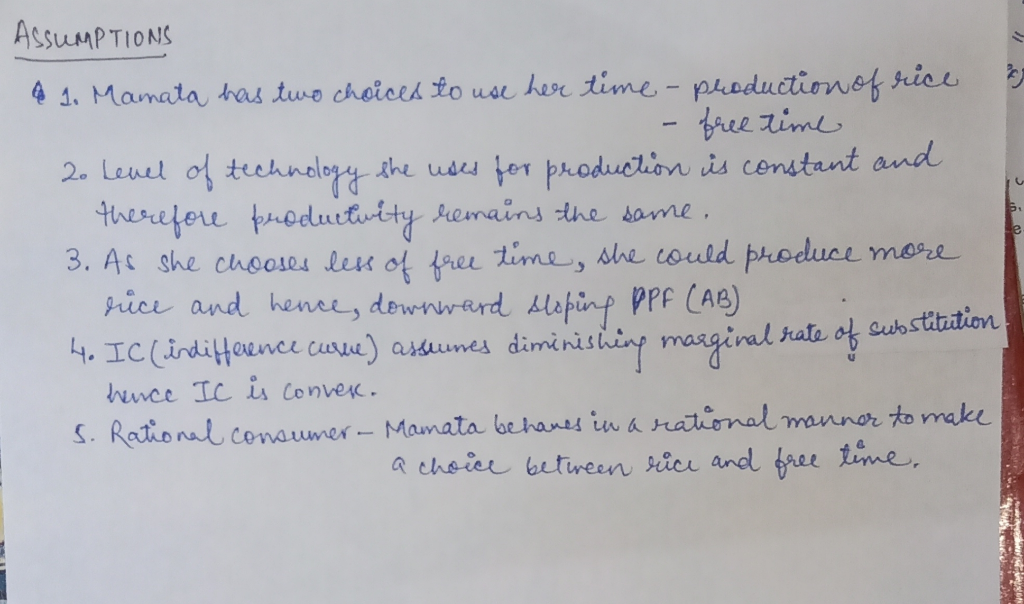 ASSUMPTIONS
1. Mamata has two choices to use her time - production of rice
- free time
2. Level of technology she uses for production is constant and
therefore productivity remains the same.
3. As she chooses less of free time, she could produce more
rice and hence, downward sloping PPF (AB)
4. IC (indifference curve) assumes diminishing marginal rate of substitution
hence IC is convex.
5. Rational consumer - Mamata behaves in a rational manner to make
a choice between rice and free time.